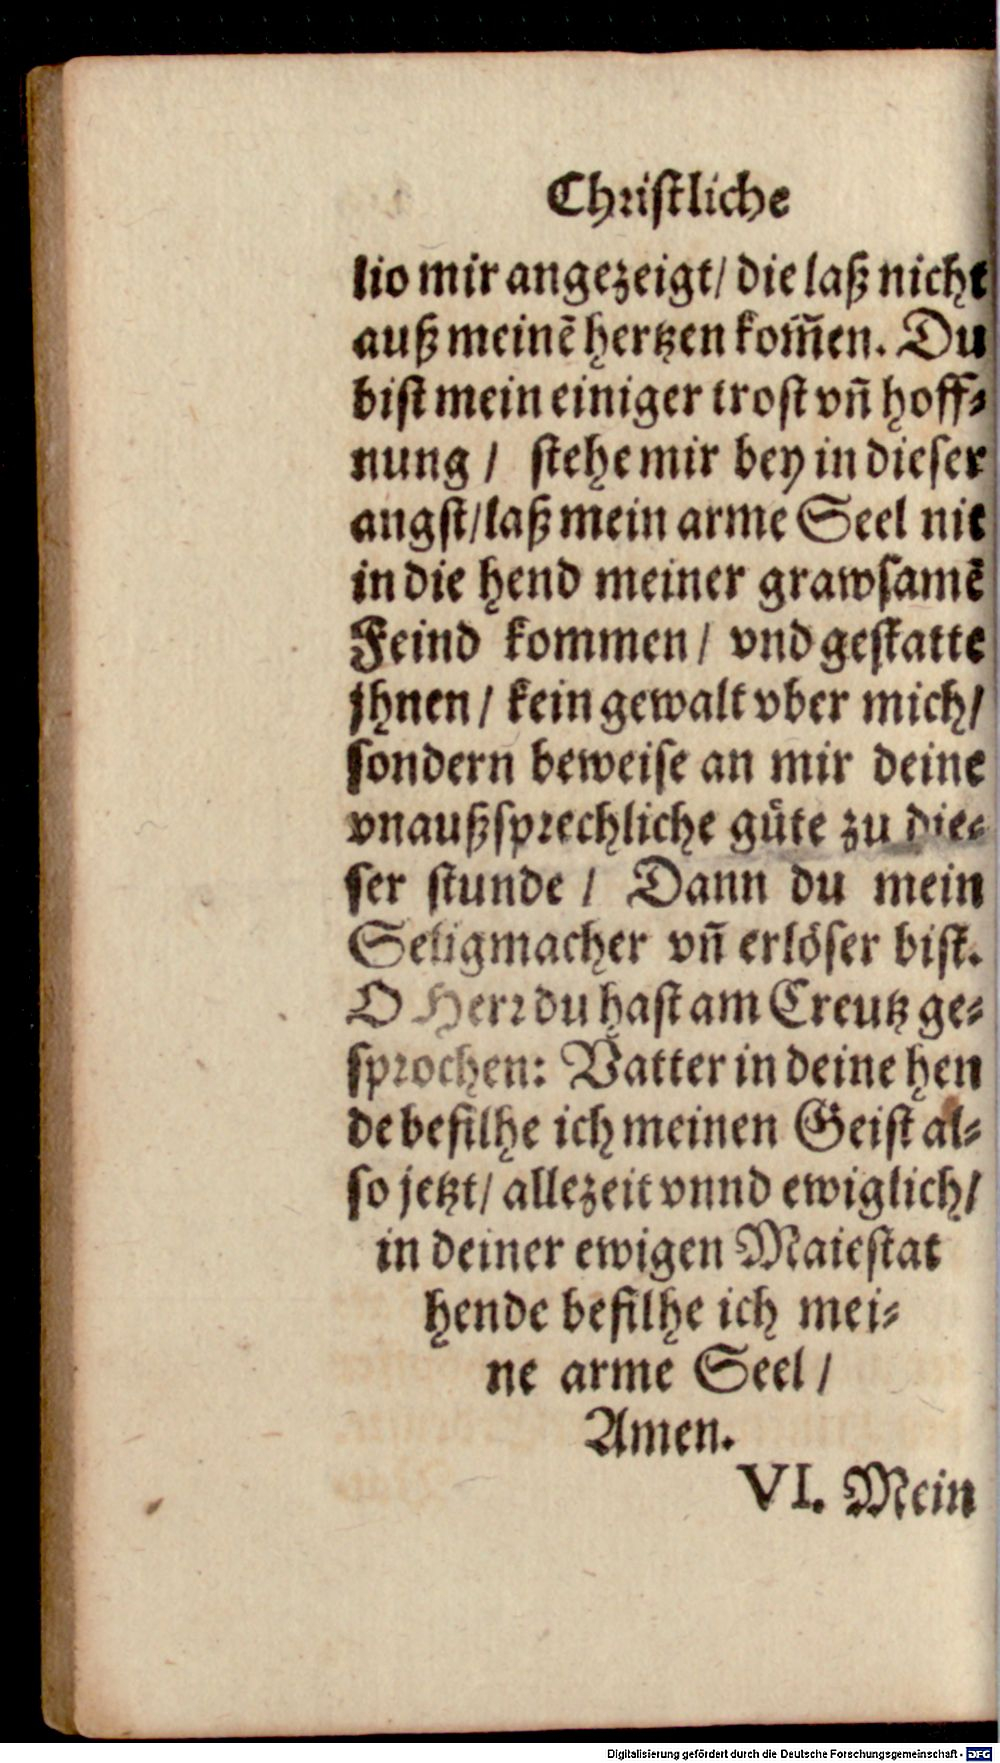 Christliche
lio mir angezeigt/ die laß nicht
auß meinē hertzen kom̄en. Du
bist mein einiger trost vn̄ hoff⸗
nung / stehe mir bey in dieser
angst/ laß mein arme Seel nit
in die hend meiner grawsamē
Feind kommen / vnd gestatte
jhnen / kein gewalt vber mich/
sondern beweise an mir deine
vnaußsprechliche güte zu die⸗
ser stunde / Dann du mein
Seligmacher vn̄ erlöser bist.
O Herr du hast am Creutz ge⸗
sprochen: Vatter in deine hen
de befilhe ich meinen Geist al⸗
so jetzt/ allezeit vnnd ewiglich/
in deiner ewigen Maiestat
hende befilhe ich mei⸗
ne arme Seel /
Amen.
VI. Mein
Digitalisierung gefördert durch die Deutsche Forschungsgemeinschaft - DFG